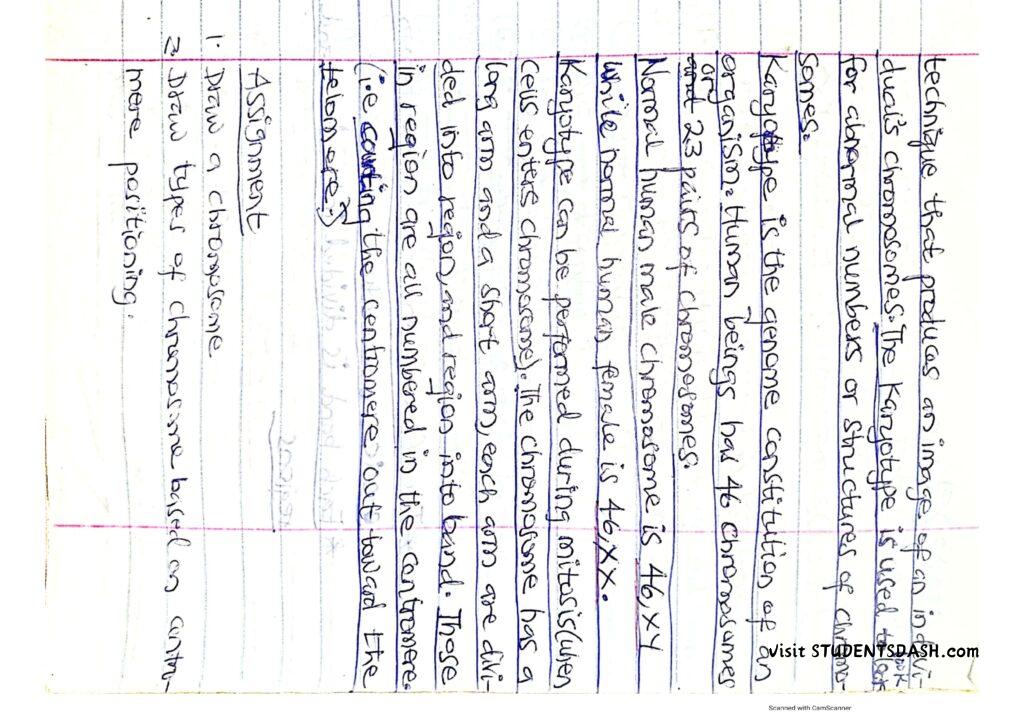 technique that produces an image of an indivi-
dual's chromosomes. The Karyotype is used to look
for abnormal numbers or structures of chromo-
somes.
Karyotype is the genome constitution of an
organism. Human beings has 46 chromosomes
or 23 pairs of chromosomes.
Normal human male chromosome is 46,XY
while normal human female is 46,XX.
Karyotype can be performed during mitosis (when
cells enters chromosome). The chromosome has a
long arm and a short arm, each arm are divi-
ded into region, and region into band. Those
in region are all numbered in the centromere.
(i.e counting the centromere out toward the
telomere.)
Assignment
1. Draw a chromosome
2. Draw types of chromosome based on centro-
mere positioning.
Visit STUDENTSDASH.com
Scanned with CamScanner